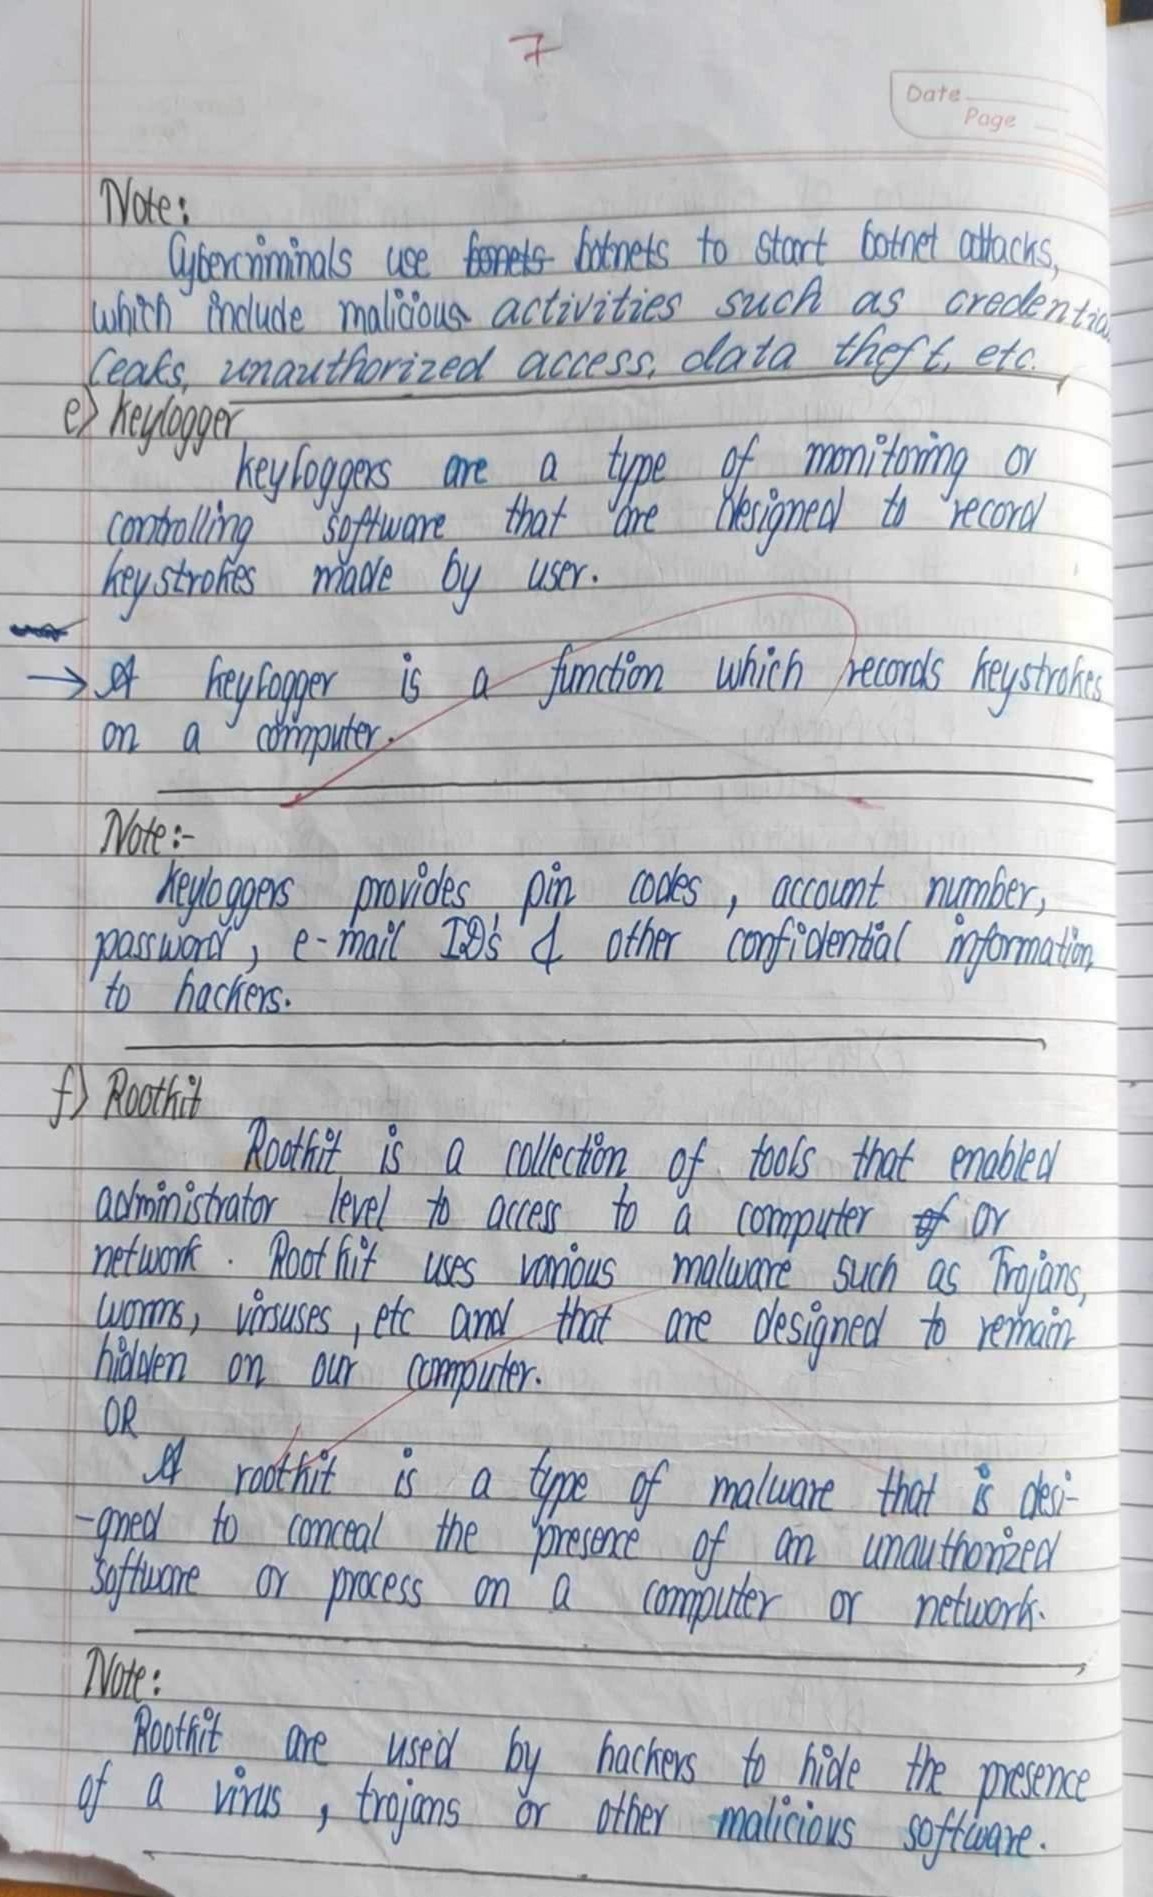 7
Date
Page
Note:
Cybercriminals use bonets botnets to start botnet attacks,
which include malicious activities such as credentia
leaks, unauthorized access, data theft, etc.
e) Keylogger
Keyloggers are a type of monitoring or
controlling software that are designed to record
keystrokes made by user.
→ A keylogger is a function which records keystrokes
on a computer.
Note:-
Keyloggers provides pin codes, account number,
password, e-mail ID's & other confidential information
to hackers.
f) Rootkit
Rootkit is a collection of tools that enabled
administrator level to access to a computer of or
network. Rootkit uses various malware such as Trojans,
worms, virsuses, etc and that are designed to remain
hidden on our computer.
OR
A rootkit is a type of malware that is desi-
-gned to conceal the presence of an unauthorized
software or process on a computer or network.
Note:
Rootkit are used by hackers to hide the presence
of a virus, trojans or other malicious software.